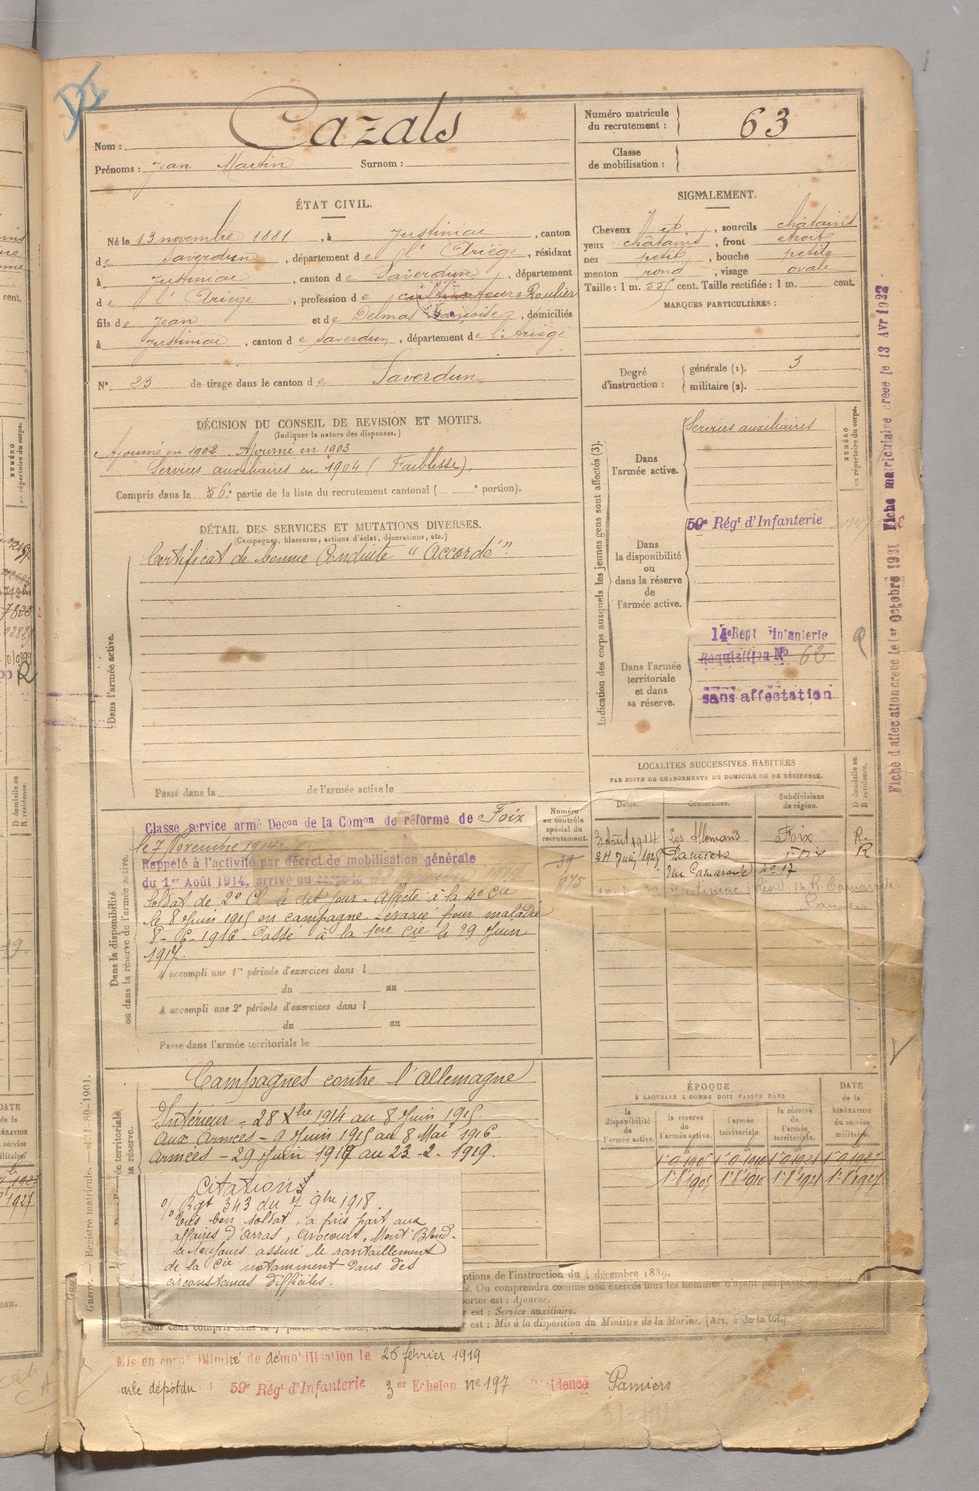 DI
Nom : Cazals
Prénoms : Jean Martin Surnom :
Numéro matricule
du recrutement : 63
Classe
de mobilisation :
ÉTAT CIVIL.
Né le 13 novembre 1881, à Justiniac, canton
de Saverdun, département de l'Ariège, résidant
à Justiniac, canton de Saverdun, département
de l'Ariège, profession de cultivateur Roulier
fils de Jean et de Delmas, domiciliés
à Justiniac, canton de Saverdun, département de l'Ariège
N° 23 de tirage dans le canton de Saverdun
SIGNALEMENT.
Cheveux, sourcils châtains
yeux châtains, front étroit
nez petit, bouche petite
menton rond, visage ovale
Taille : 1 m. 55 cent. Taille rectifiée : 1 m. cent.
MARQUES PARTICULIÈRES :
Degré
d'instruction :
générale (1). 3
militaire (2).
DÉCISION DU CONSEIL DE REVISION ET MOTIFS.
(Indiquer la nature des dispenses.)
Ajourné en 1902. Ajourné en 1903
Services auxiliaires en 1904 (Faiblesse).
Compris dans la 5e partie de la liste du recrutement cantonal ( e portion).
DÉTAIL DES SERVICES ET MUTATIONS DIVERSES.
(Campagnes, blessures, actions d'éclat, décorations, etc.)
Certificat de bonne Conduite "Accordé".
Dans l'armée active.
Passé dans la de l'armée active le
Indication des corps auxquels les jeunes gens sont affectés (3).
NUMÉRO
au répertoire du corps.
Dans
l'armée active.
Services auxiliaires
Dans
la disponibilité
ou
dans la réserve
de
l'armée active.
59e Régt d'Infanterie
Dans l'armée
territoriale
et dans
sa réserve.
14e Regt Infanterie
Réquisition No 62
sans affectation
Fiche d'affectation créée le 1er Octobre 1921 Fiche matriculaire créée le 13 Avr 1923
LOCALITÉS SUCCESSIVES HABITÉES
PAR SUITE DE CHANGEMENTS DE DOMICILE OU DE RÉSIDENCE.
Dates. Communes. Subdivisions
de région.
D domicile ou
R résidence.
3 Août 1914 Les Allemans Foix R
Pamiers Foix R
Justiniac
Dans la disponibilité
ou dans la réserve de l'armée active.
Numéro
au contrôle
spécial du
recrutement.
Classé service armé Decon de la Comon de réforme de Foix
le 7 Novembre 1914
Rappelé à l'activité par décret de mobilisation générale
du 1er Août 1914, arrivé au corps le
Soldat de 2e Cl. le dit jour. Affecté à la 4e Cie
le 8 Juin 1915 en campagne. Evacué pour maladie
1916. Passé à la 1ere Cie le 29 Juin
1917.
A accompli une 1re période d'exercices dans l
du au
A accompli une 2e période d'exercices dans l
du au
Passé dans l'armée territoriale le
Campagnes contre l'Allemagne
Intérieur - 28 Xbre 1914 au 8 Juin 1915
Aux Armées - 9 Juin 1915 au 8 Mai 1916
Armées - 29 Juin 1917 au 23-2-1919.
Citations
o/ Rgt 343 du 7 9bre 1918.
Très bon soldat, a pris part aux
affaires d'Arras, Avocourt, Mont Blond.
a toujours assuré le ravitaillement
de la Cie notamment dans des
circonstances difficiles.
ÉPOQUE
À LAQUELLE L'HOMME DOIT PASSER DANS
DATE
de la
LIBÉRATION
du service
militaire.
la
disponibilité
de
l'armée active.
la réserve
de
l'armée active.
l'armée
territoriale.
la réserve
de
l'armée
territoriale.
Guerre. — Registre matricule.
ptions de l'instruction du 4 décembre 1889.
porter est : Ajourné.
er est : Service auxiliaire.
er est : Mis à la disposition du Ministre de la Marine.
Mis en congé illimité de démobilisation le 26 février 1919
par le dépôt du 59e Régt d'Infanterie 3e Echelon no 197 Résidence Pamiers